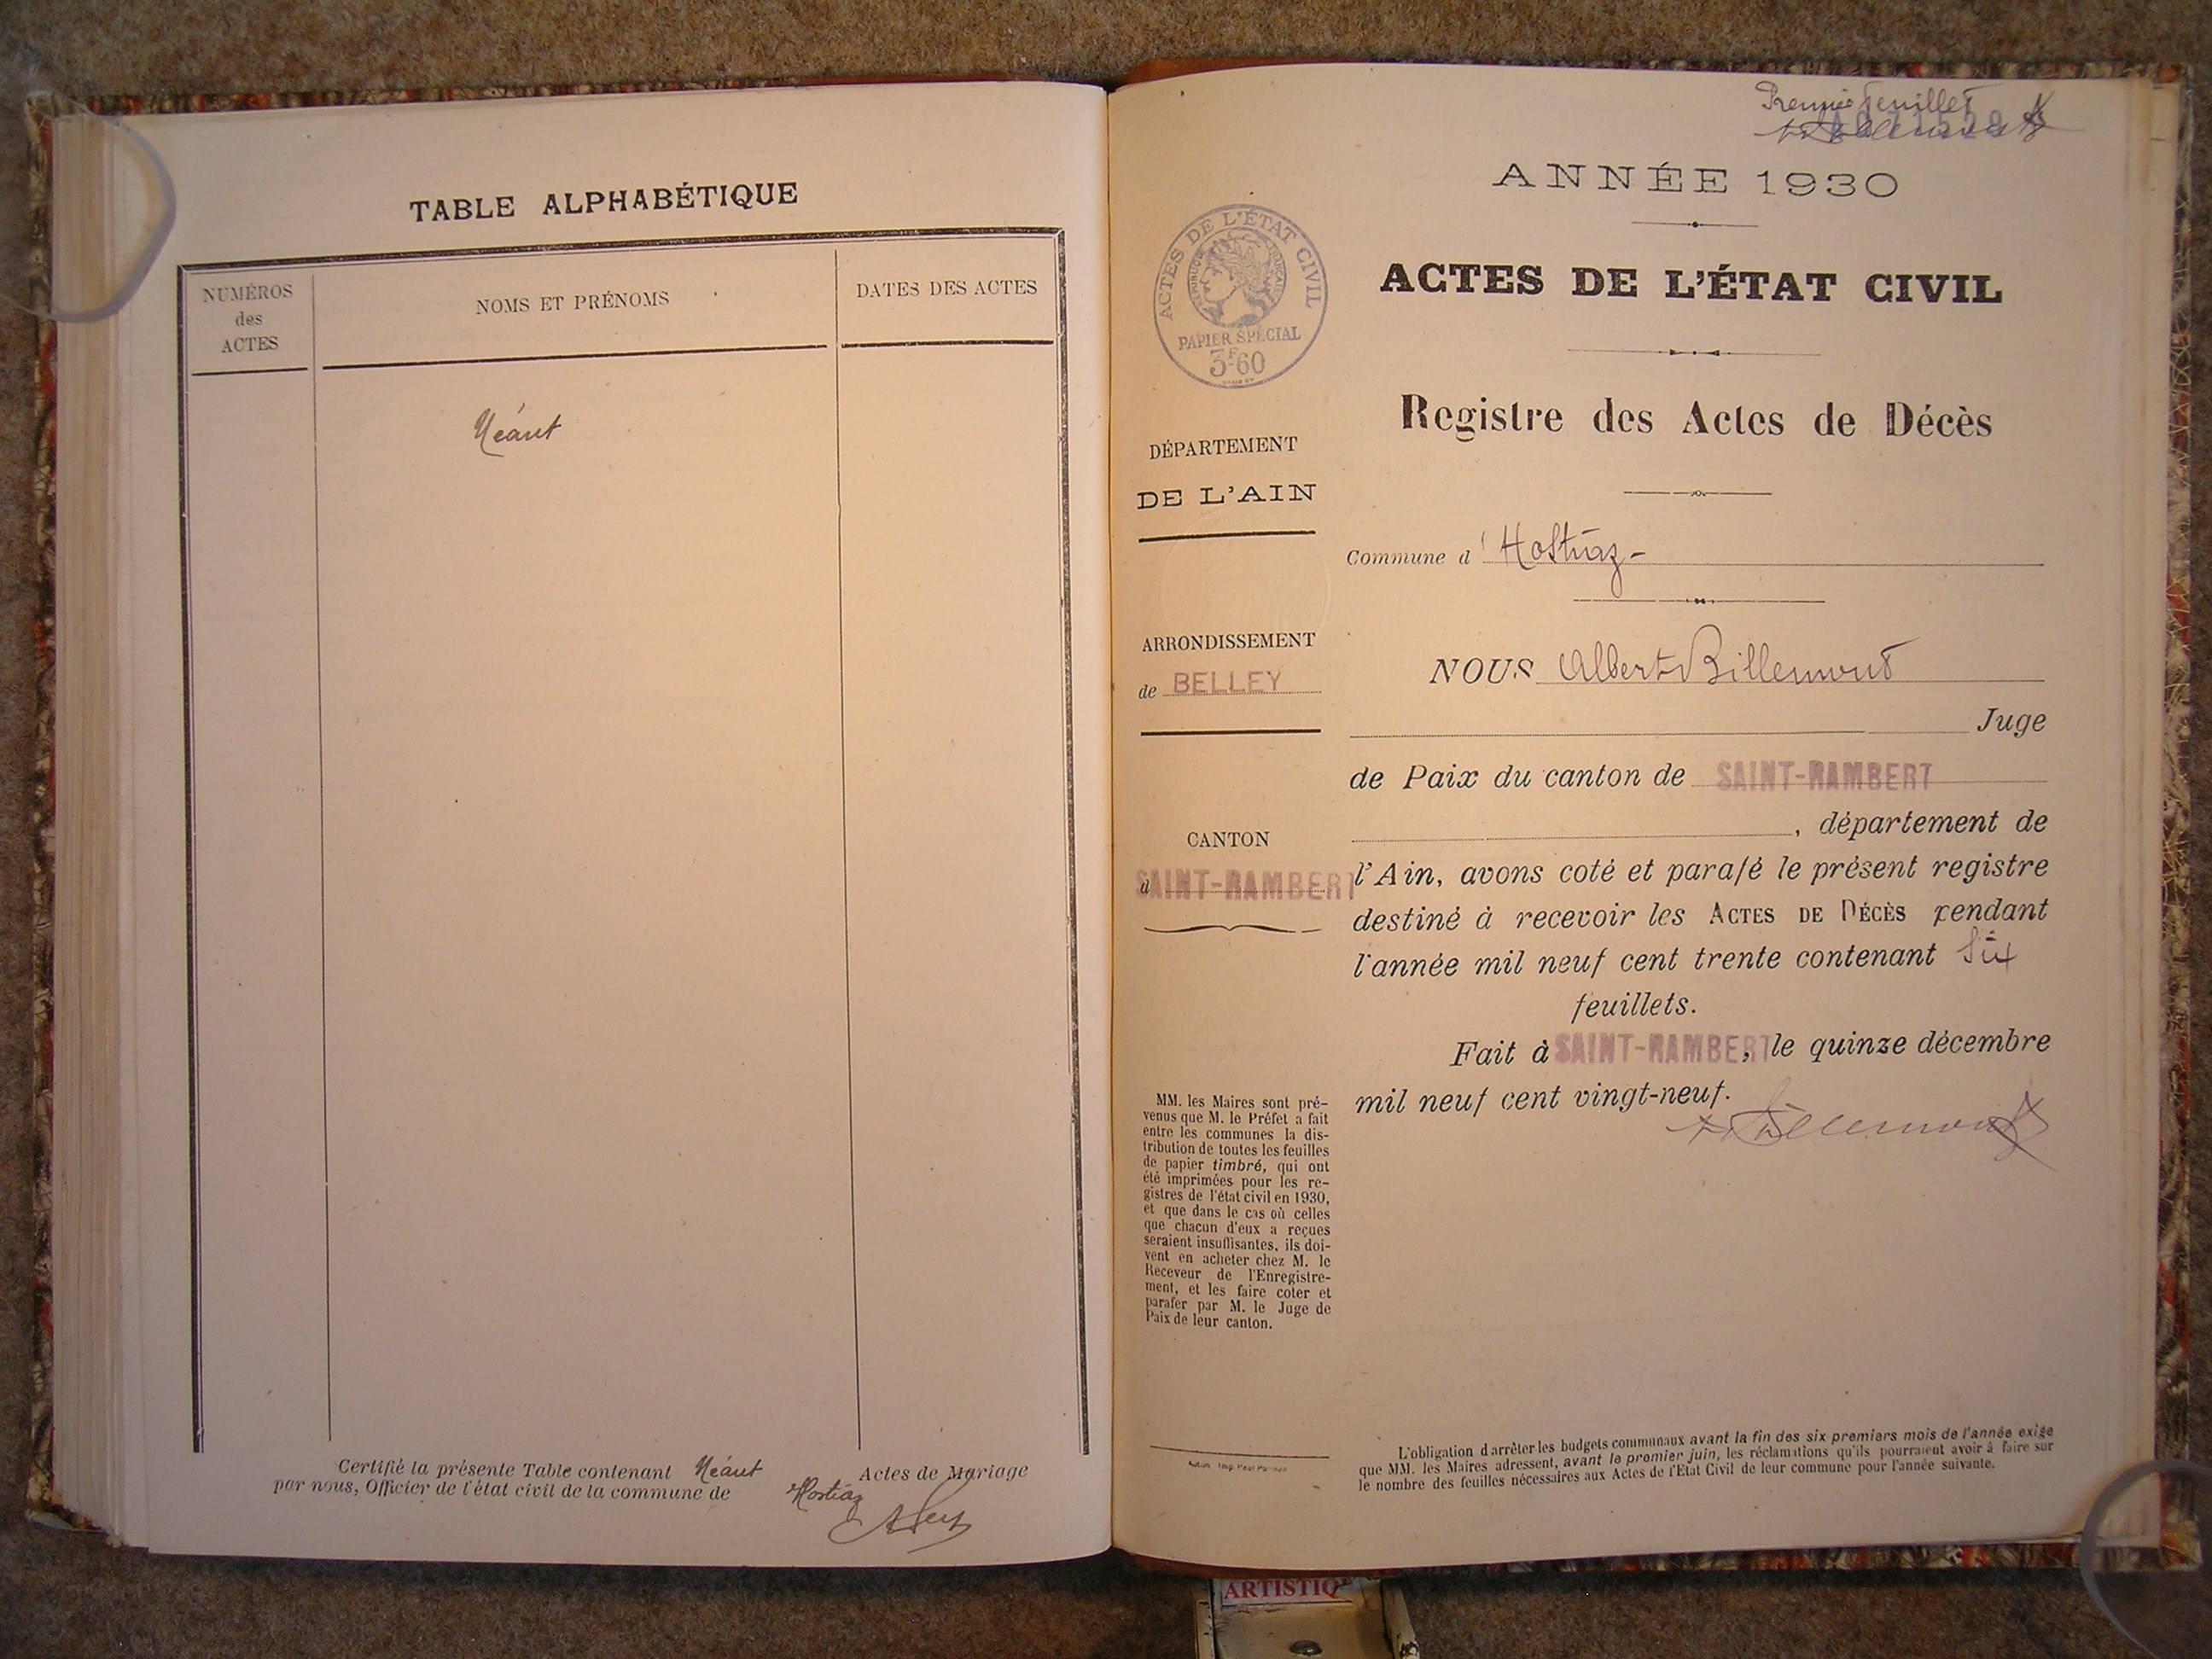 TABLE ALPHABÉTIQUE
NUMÉROS
des
ACTES
NOMS ET PRÉNOMS
DATES DES ACTES
Néant
Certifié la présente Table contenant Néant Actes de Mariage
par nous, Officier de l'état civil de la commune de Hostiaz
Premier feuillet
ANNÉE 1930
ACTES DE L'ÉTAT CIVIL
RÉPUBLIQUE FRANÇAISE
PAPIER SPÉCIAL
3F60
ACTES DE L'ÉTAT CIVIL
Registre des Actes de Décès
DÉPARTEMENT
DE L'AIN
Commune d'Hostiaz-
ARRONDISSEMENT
de BELLEY
CANTON
d SAINT-RAMBERT
NOUS Albert Billemont
Juge
de Paix du canton de SAINT-RAMBERT
, département de
l'Ain, avons coté et parafé le présent registre
destiné à recevoir les ACTES DE DÉCÈS pendant
l'année mil neuf cent trente contenant Six
feuillets.
Fait à SAINT-RAMBERT, le quinze décembre
mil neuf cent vingt-neuf.
Billemont
MM. les Maires sont pré-
venus que M. le Préfet a fait
entre les communes la dis-
tribution de toutes les feuilles
de papier timbré, qui ont
été imprimées pour les re-
gistres de l'état civil en 1930,
et que dans le cas où celles
que chacun d'eux a reçues
seraient insuffisantes, ils doi-
vent en acheter chez M. le
Receveur de l'Enregistre-
ment, et les faire coter et
parafer par M. le Juge de
Paix de leur canton.
L'obligation d'arrêter les budgets communaux avant la fin des six premiers mois de l'année exige
que MM. les Maires adressent, avant le premier juin, les réclamations qu'ils pourraient avoir à faire sur
le nombre des feuilles nécessaires aux Actes de l'État Civil de leur commune pour l'année suivante.
ARTISTIQ